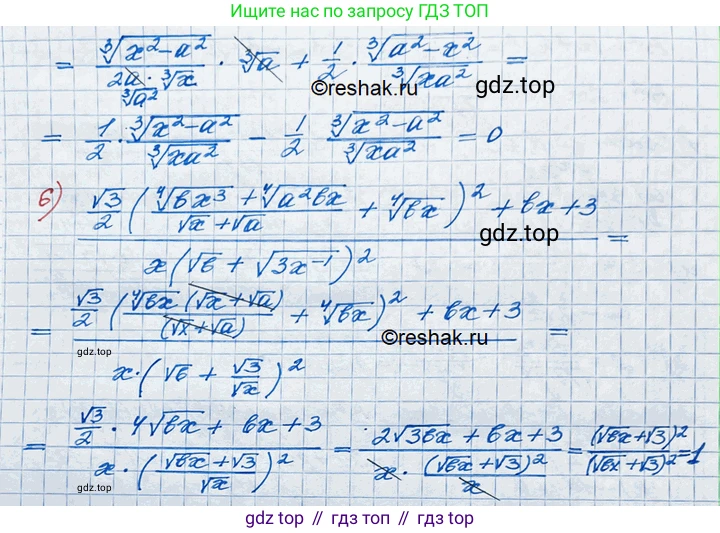 Ищите нас по запросу ГДЗ ТОП
= ∛(x²−a²) / (2a·∛x / ∛a²) · ∛a + 1/2 · ∛(a²−x²) / ∛(xa²) =
©reshak.ru
gdz.top
= 1/2 · ∛(x²−a²) / ∛(xa²) − 1/2 ∛(x²−a²) / ∛(xa²) = 0
б) (√3/2 ((∜(bx³) + ∜(a²bx)) / (√x + √a) + ∜(bx))² + bx + 3) / (x(√b + √(3x⁻¹))²) =
gdz.top
= (√3/2 (∜(bx) (√x + √a) / (√x + √a) + ∜(bx))² + bx + 3) / (x · (√b + √3/√x)²) =
gdz.top
©reshak.ru
= (√3/2 · 4√(bx) + bx + 3) / (x · ((√(bx) + √3) / √x)²) = (2√(3bx) + bx + 3) / (x · (√(bx) + √3)² / x) = (√(bx) + √3)² / (√(bx) + √3)² = 1
gdz.top
gdz top // гдз топ // gdz top